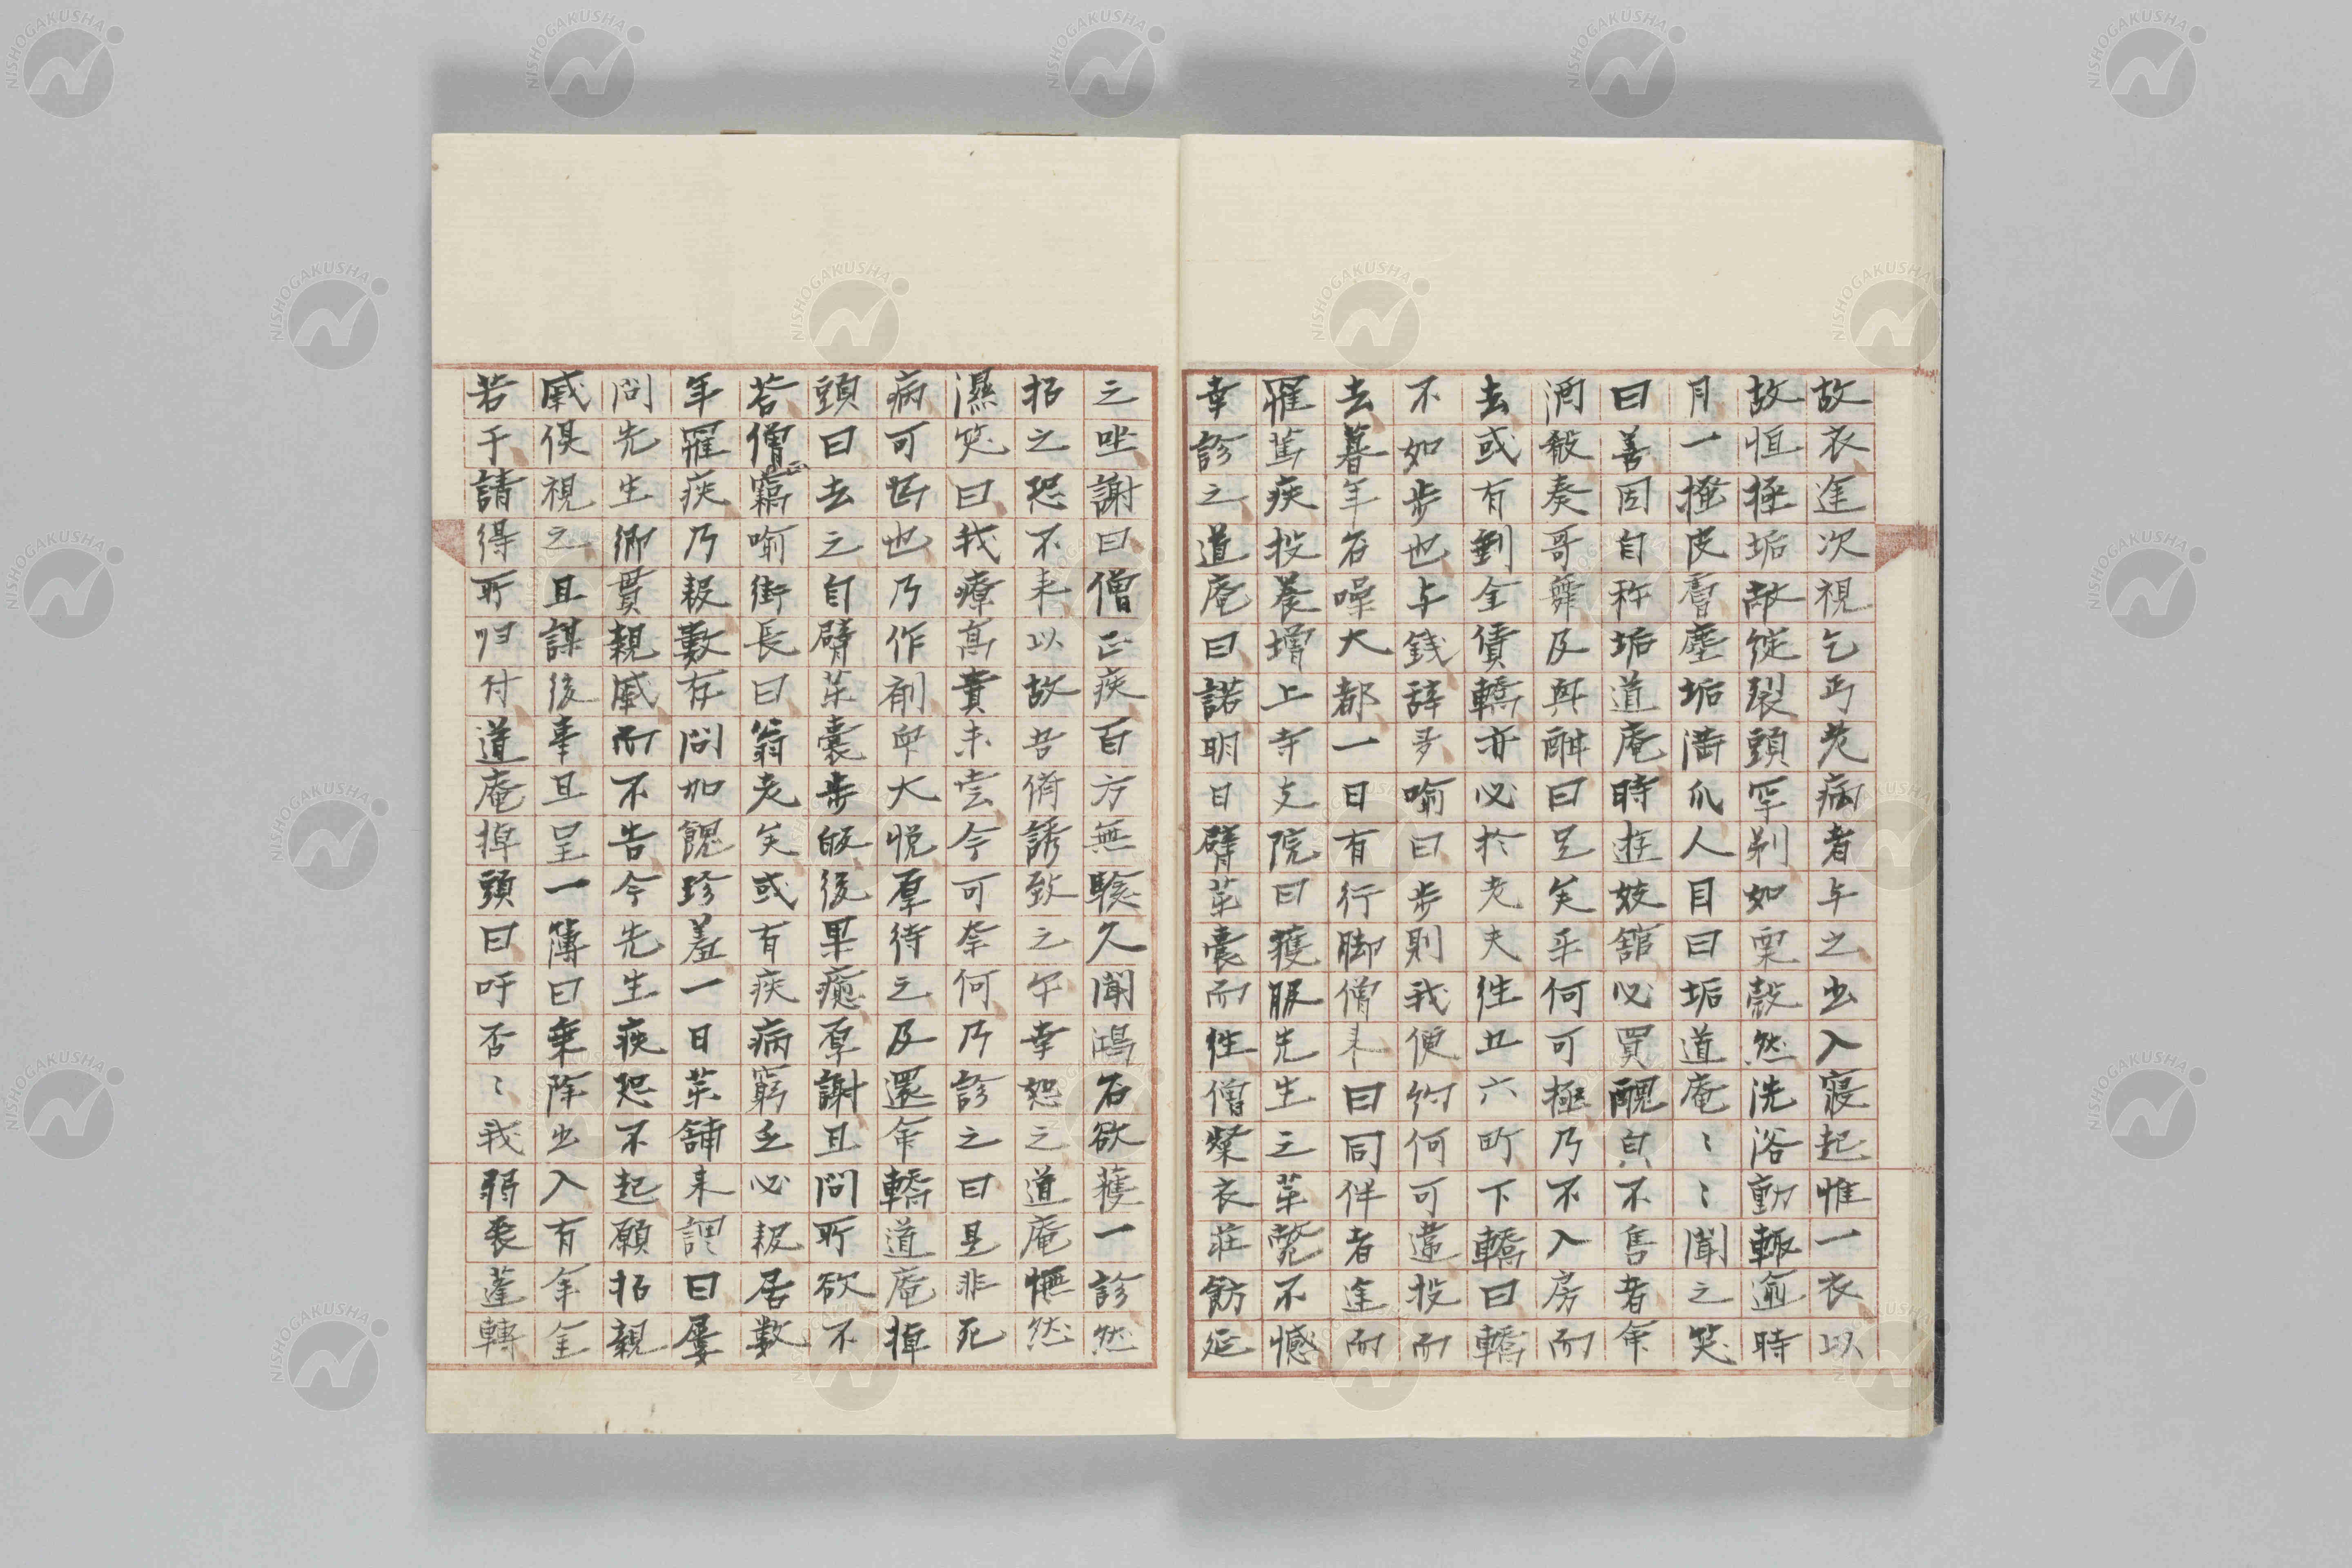 故衣逹次視乞丐羌病者与之出入寝起惟一衣以
故恒極垢敝綻裂頭罕剃如栗殼然洗浴動輙逾時
月一擦皮膚塵垢満爪人目曰垢道庵〻〻聞之笑
曰善因自称垢道庵時遊妓舘必買醜貟不售者年
酒殽奏哥舞及興酣曰足矣乎何可極乃不入房而
去或有到全賃轎亦必於老夫徃五六町下轎曰轎
不如步也与錢辞予喻曰步則我便約何可違投而
去暮年名噪大都一日有行脚僧来曰同伴者途而
罹篤疾投養増上寺支院曰獲服先生之茉斃不憾
幸診之道庵曰諾明日臂茉囊而徃僧檠衣莊飭延
之唑謝曰僧正疾百方無驗久聞鴻名欲獲一診然
招之恐不来以故吾儕誘致之午幸恕之道庵憮然
濕笑曰我療高貴未嘗今可奈何乃診之曰是非死
病可哲也乃作剤卑大悦厚待之及還年轎道庵掉
頭曰去之自臂茉囊步皈後果癒厚謝且問所欲不
荅僧正竊喻街長曰翁老矣或有疾病窮乏必報居数
年罹疾乃報數存問加餽珍羞一日茉舗来謂曰屡
問先生鄉貫親戚而不告今先生疾恐不起願招親
戚俱視之且謀後事且呈一簿曰乗除出入有年全
若于請得所归付道庵掉頭曰吁否〻我弱喪蓬轉